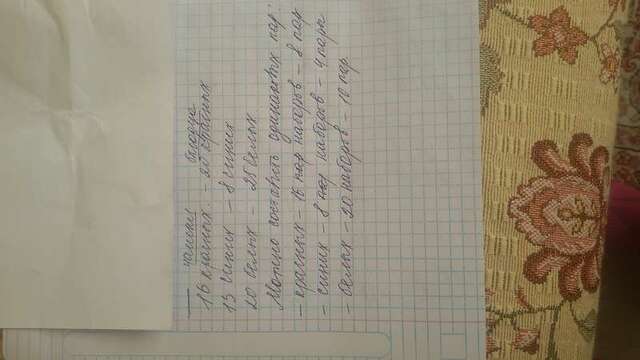 чашки блюдце
16 красных - 25 красных
13 синих - 8 синих
20 белых - 25 белых
Можно составить одинаковых пар:
- красных - 16 пар наборов - 8 пар
- синих - 8 пар наборов - 4 пары
- белых - 20 наборов - 10 пар